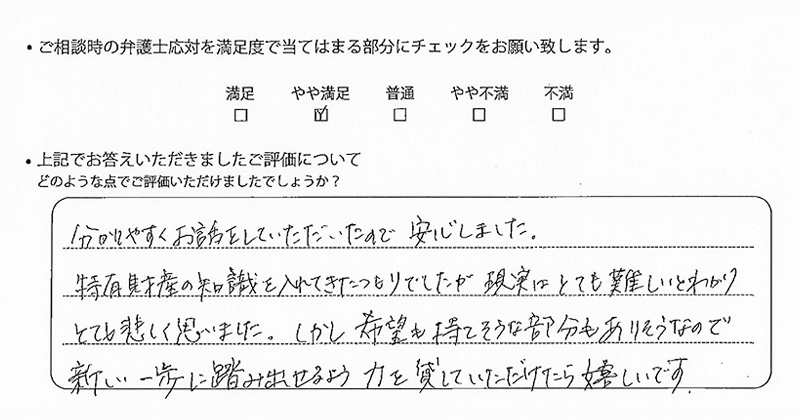 ・ご相談時の弁護士応対を満足度で当てはまる部分にチェックをお願い致します。
満足 やや満足 普通 やや不満 不満
□ ☑ □ □ □
・上記でお答えいただきましたご評価について
どのような点でご評価いただけましたでしょうか？
分かりやすくお話をしていただいたので 安心しました。
特有財産の知識を入れてきたつもりでしたが 現実はとても難しいとわかり
とても悲しく思いました。しかし 希望も持てそうな部分もありそうなので
新しい一歩に踏み出せるよう 力を貸していただけたら嬉しいです